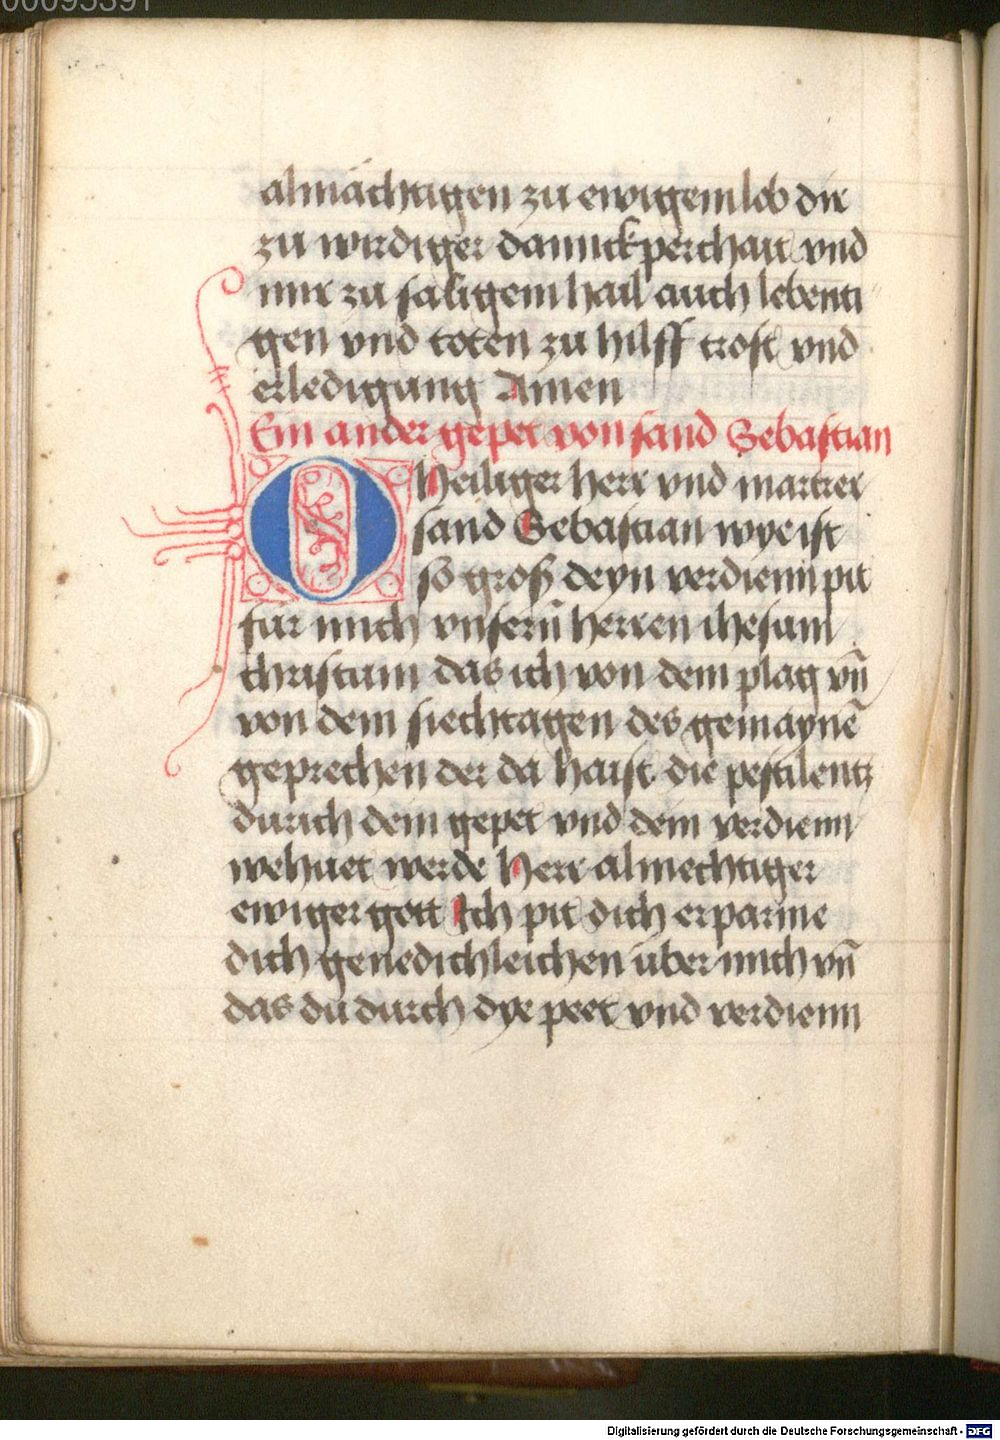 00095391
almächtigen zu ewigem lob dir
zu wirdiger dannckperchait vnd
mir zu säligem hail auch lebenti
gen vnd toten zu hilff trost vnd
erledigung Amen
Ein ander gepet von sand Sebastian
O Heiliger herr vnd martrer
sand Sebastian wye ist
so groß deyn verdienn pit
für mich vnsern̄ herren ihesum
christum das ich von dem plag vn̄
von dem siechtagen des gemaynē
geprechen der da haist die pestilentz
durich dein gepet vnd dein verdienn
wehuet werde Herr almechtiger
ewiger gott Ich pit dich erparme
dich genedichleichen über mich vn̄
das du durch dye peet vnd verdienn
Digitalisierung gefördert durch die Deutsche Forschungsgemeinschaft - DFG